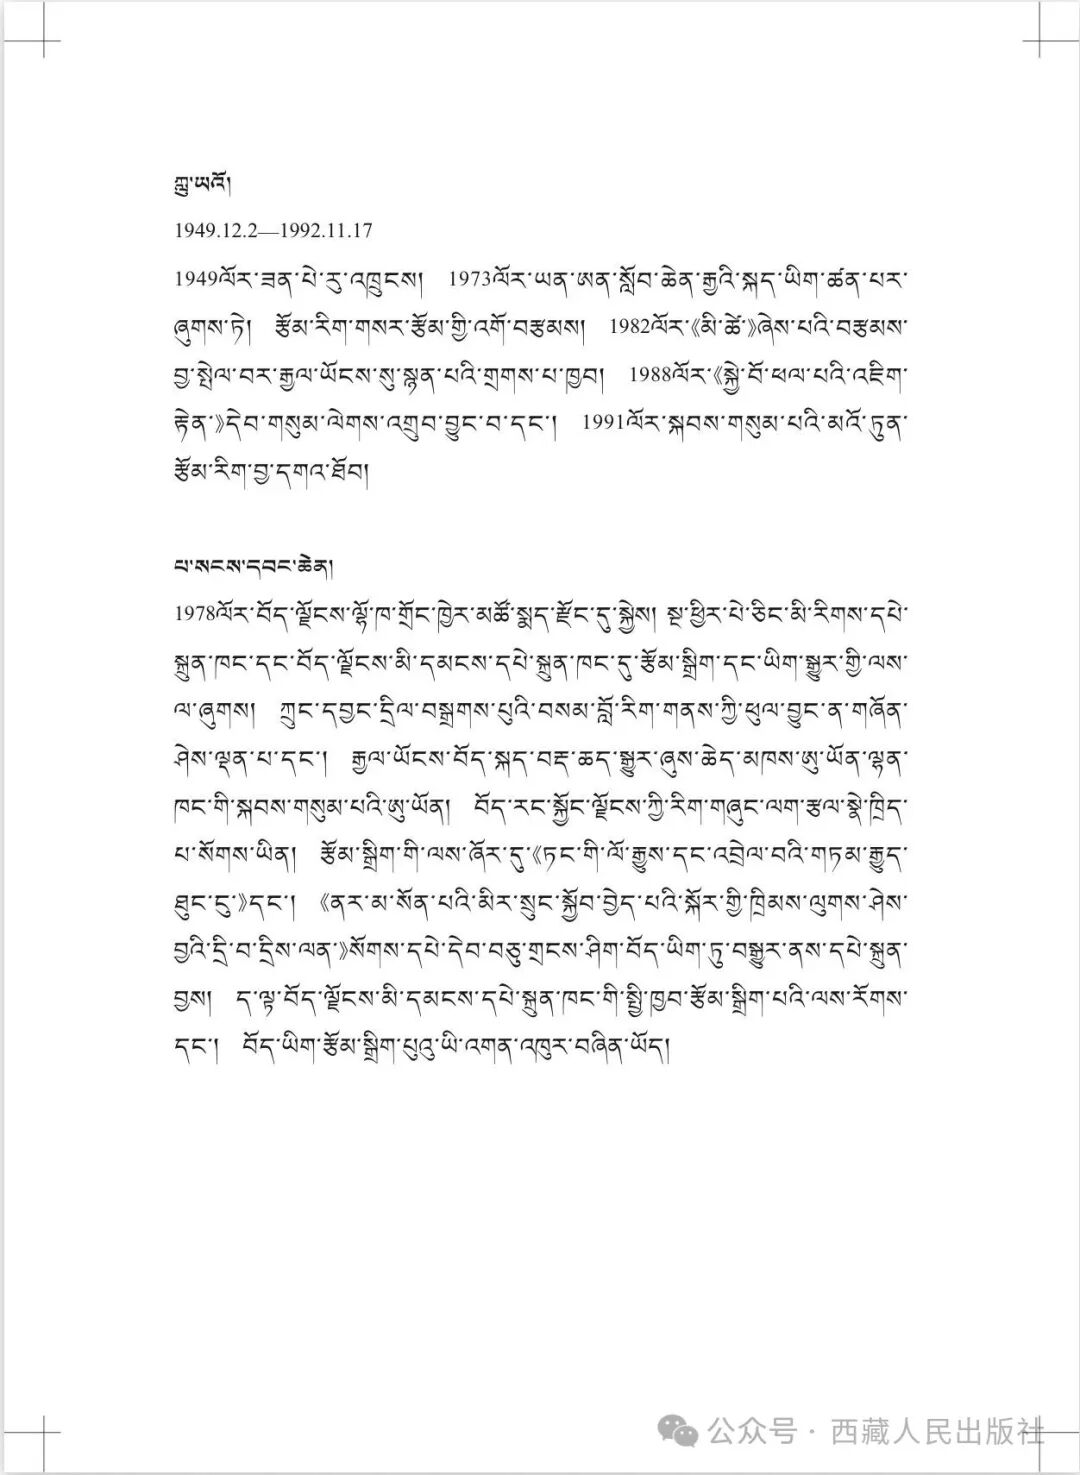 ཀླུ་ཡའོ།
1949.12.2—1992.11.17
1949ལོར་ཟན་པེ་རུ་འཁྲུངས། 1973ལོར་ཡན་ཨན་སློབ་ཆེན་རྒྱའི་སྐད་ཡིག་ཚན་པར་
ཞུགས་ཏེ། རྩོམ་རིག་གསར་རྩོམ་གྱི་འགོ་བརྩམས། 1982ལོར་《མི་ཚེ་》ཞེས་པའི་བརྩམས་
བྱ་སྤེལ་བར་རྒྱལ་ཡོངས་སུ་སྙན་པའི་གྲགས་པ་ཁྱབ། 1988ལོར་《སྐྱེ་བོ་ཕལ་པའི་འཇིག་
རྟེན་》དེབ་གསུམ་ལེགས་འགྲུབ་བྱུང་བ་དང་། 1991ལོར་སྐབས་གསུམ་པའི་མའོ་ཏུན་
རྩོམ་རིག་བྱ་དགའ་ཐོབ།
པ་སངས་དབང་ཆེན།
1978ལོར་བོད་ལྗོངས་ལྷོ་ཁ་གྲོང་ཁྱེར་མཚོ་སྨད་རྫོང་དུ་སྐྱེས། སྔ་ཕྱིར་པེ་ཅིང་མི་རིགས་དཔེ་
སྐྲུན་ཁང་དང་བོད་ལྗོངས་མི་དམངས་དཔེ་སྐྲུན་ཁང་དུ་རྩོམ་སྒྲིག་དང་ཡིག་སྒྱུར་གྱི་ལས་
ལ་ཞུགས། ཀྲུང་དབྱང་དྲིལ་བསྒྲགས་པུའི་བསམ་བློ་རིག་གནས་ཀྱི་ཕུལ་བྱུང་ན་གཞོན་
ཤེས་ལྡན་པ་དང་། རྒྱལ་ཡོངས་བོད་སྐད་བརྡ་ཆད་སྒྱུར་ཞུས་ཆེད་མཁས་ཨུ་ཡོན་ལྷན་
ཁང་གི་སྐབས་གསུམ་པའི་ཨུ་ཡོན། བོད་རང་སྐྱོང་ལྗོངས་ཀྱི་རིག་གཞུང་ལག་རྩལ་སྣེ་ཁྲིད་
པ་སོགས་ཡིན། རྩོམ་སྒྲིག་གི་ལས་ཞོར་དུ་《ཏང་གི་ལོ་རྒྱུས་དང་འབྲེལ་བའི་གཏམ་རྒྱུད་
ཐུང་ངུ་》དང་། 《ནར་མ་སོན་པའི་མིར་སྲུང་སྐྱོབ་བྱེད་པའི་སྐོར་གྱི་ཁྲིམས་ལུགས་ཤེས་
བྱའི་དྲི་བ་དྲིས་ལན་》སོགས་དཔེ་དེབ་བཅུ་གྲངས་ཤིག་བོད་ཡིག་ཏུ་བསྒྱུར་ནས་དཔེ་སྐྲུན་
བྱས། ད་ལྟ་བོད་ལྗོངས་མི་དམངས་དཔེ་སྐྲུན་ཁང་གི་སྤྱི་ཁྱབ་རྩོམ་སྒྲིག་པའི་ལས་རོགས་
དང་། བོད་ཡིག་རྩོམ་སྒྲིག་པུའུ་ཡི་འགན་འཁུར་བཞིན་ཡོད།
公众号 · 西藏人民出版社